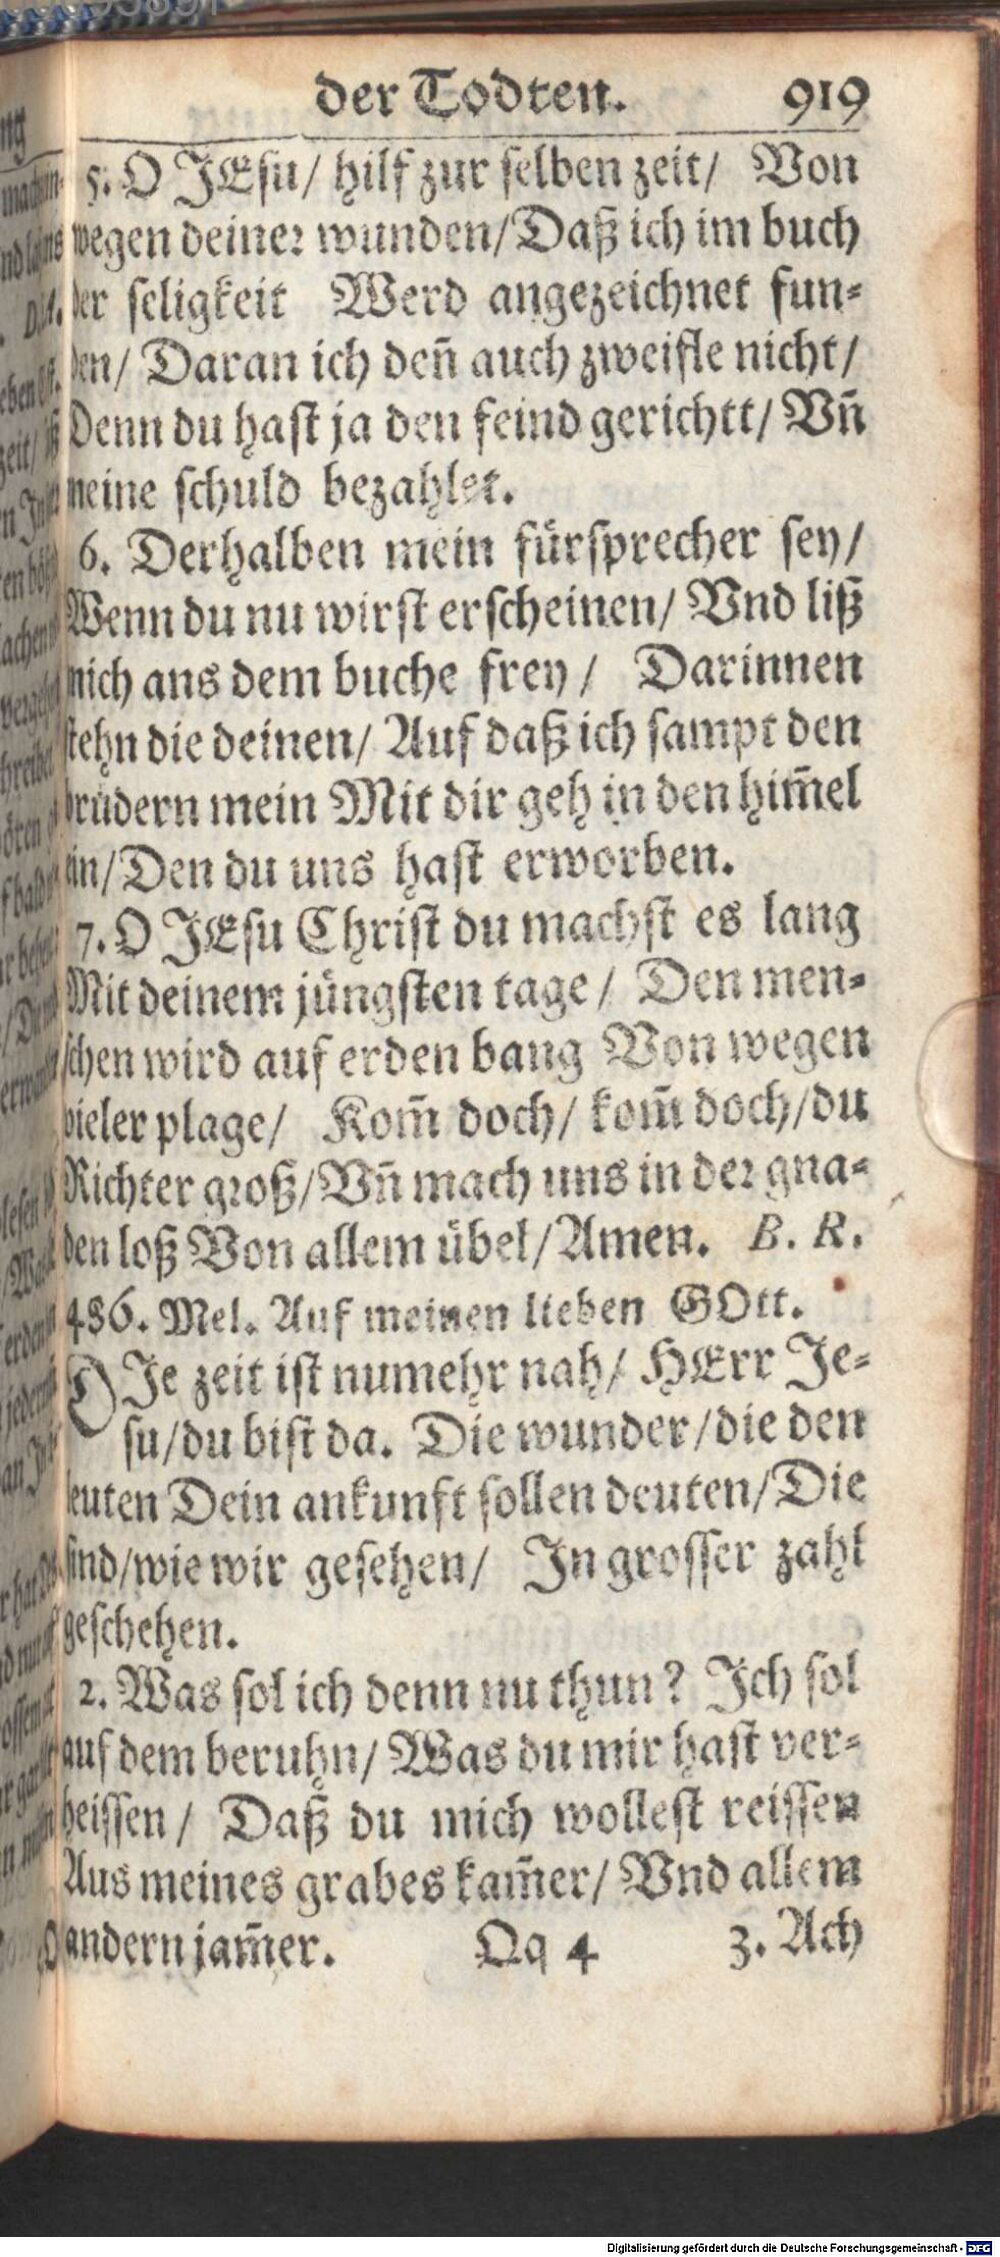 der Todten. 919
5. O JEsu/ hilf zur selben zeit/ Von
wegen deiner wunden/Daß ich im buch
der seligkeit Werd angezeichnet fun-
den/ Daran ich deñ auch zweifle nicht/
Denn du hast ja den feind gerichtt/ Vñ
meine schuld bezahlet.
6. Derhalben mein fürsprecher sey/
Wenn du nu wirst erscheinen/ Vnd liß
mich aus dem buche frey/ Darinnen
stehn die deinen/ Auf daß ich sampt den
brüdern mein Mit dir geh in den him̃el
ein/Den du uns hast erworben.
7. O JEsu Christ du machst es lang
Mit deinem jüngsten tage/ Den men-
schen wird auf erden bang Von wegen
vieler plage/ Kom̃ doch/ kom̃ doch/du
Richter groß/Vñ mach uns in der gna-
den loß Von allem übel/Amen. B. R.
486. Mel. Auf meinen lieben GOtt.
DJe zeit ist numehr nah/ HErr Je-
su/du bist da. Die wunder/die den
leuten Dein ankunft sollen deuten/Die
sind/wie wir gesehen/ In grosser zahl
geschehen.
2. Was sol ich denn nu thun? Ich sol
auf dem beruhn/ Was du mir hast ver-
heissen/ Daß du mich wollest reissen
Aus meines grabes kam̃er/ Vnd allem
andern jam̃er. Qq 4 3. Ach
Digitalisierung gefördert durch die Deutsche Forschungsgemeinschaft - DFG